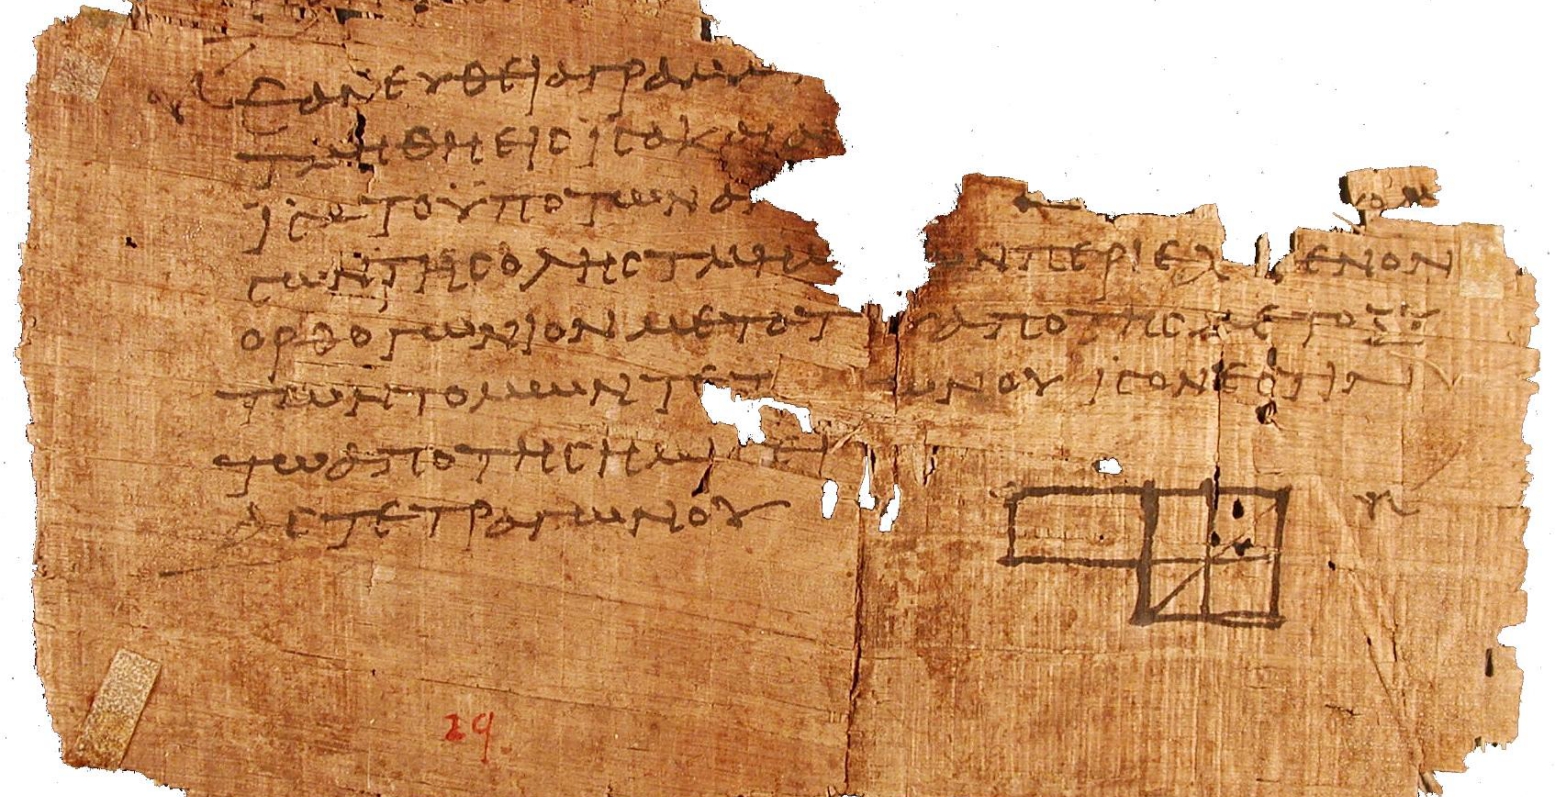 ΕΑΝ ΕΥΘΕΙΑ ΓΡΑΜΜ
ΤΜΗΘΗ ΕΙϹ ΙϹΑ ΚΑΙ Α
ΙϹΑ ΤΟ ΥΠΟ ΤΩΝ ΑΝ
ϹΩΝ ΤΗϹ ΟΛΗϹ ΤΜΗΜ ΩΝ ΠΕΡΙΕΧ ΜΕΝΟΝ
ΟΡΘΟΓΩΝΙΟΝ ΜΕΤΑ Τ ΑΠΟ ΤΗϹ ΜΕΤΟΞΥ
ΤΩΝ ΤΟΜΩΝ ΤΕΤ ΩΝΟΥ ΙϹΟΝ ΕϹΤΙΝ
ΤΩ ΑΠΟ ΤΗϹ ΗΜΙϹΕΙ
ΑϹ ΤΕΤΡΑΓΩΝΟΥ
29